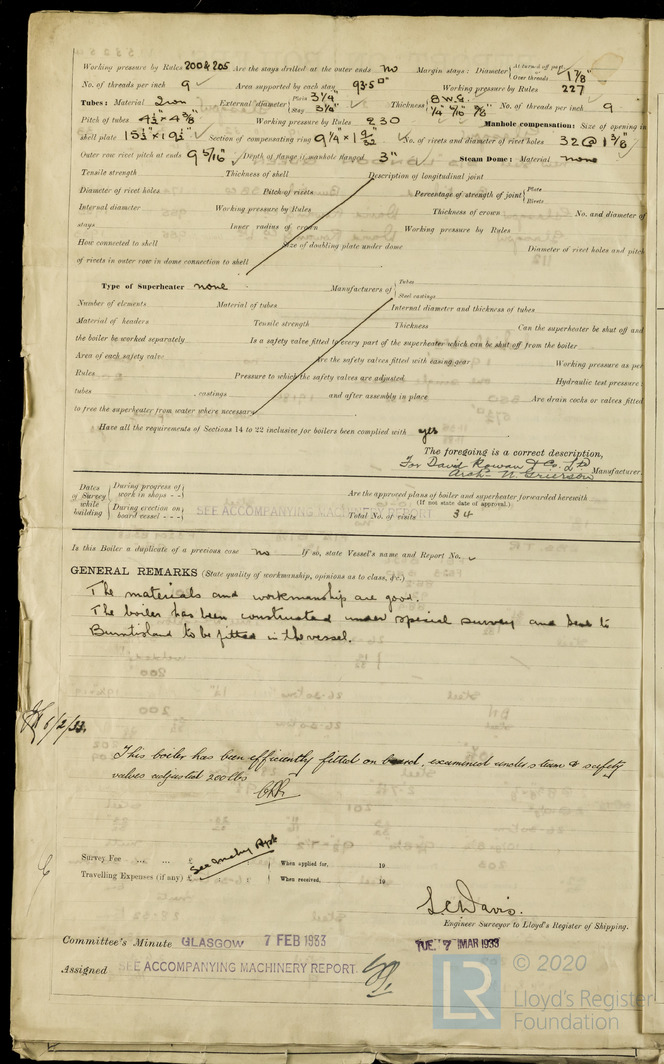 Working pressure by Rules 200 & 205 Are the stays drilled at the outer ends no Margin stays: Diameter { At turned off part, Over threads 1 7/8"
No. of threads per inch 9 Area supported by each stay 93.5 □" Working pressure by Rules 227
Tubes: Material Iron External diameter { Plain 3 1/4" Stay 3 1/4" Thickness { 8 W.G. 1/4" 5/16" 3/8" No. of threads per inch 9
Pitch of tubes 4 1/2" x 4 3/8" Working pressure by Rules 230 Manhole compensation: Size of opening in
shell plate 15 1/2" x 19 1/2" Section of compensating ring 9 1/4" x 1 9/32" No. of rivets and diameter of rivet holes 32 @ 1 3/8"
Outer row rivet pitch at ends 9 5/16" Depth of flange if manhole flanged 3" Steam Dome: Material none
Tensile strength Thickness of shell Description of longitudinal joint
Diameter of rivet holes Pitch of rivets Percentage of strength of joint { Plate Rivets
Internal diameter Working pressure by Rules Thickness of crown No. and diameter of
stays Inner radius of crown Working pressure by Rules
How connected to shell Size of doubling plate under dome Diameter of rivet holes and pitch
of rivets in outer row in dome connection to shell
Type of Superheater none Manufacturers of { Tubes Steel castings
Number of elements Material of tubes Internal diameter and thickness of tubes
Material of headers Tensile strength Thickness Can the superheater be shut off and
the boiler be worked separately Is a safety valve fitted to every part of the superheater which can be shut off from the boiler
Area of each safety valve Are the safety valves fitted with easing gear Working pressure as per
Rules Pressure to which the safety valves are adjusted Hydraulic test pressure:
tubes , castings and after assembly in place Are drain cocks or valves fitted
to free the superheater from water where necessary
Have all the requirements of Sections 14 to 22 inclusive for boilers been complied with yes
The foregoing is a correct description,
For David Rowan & Co. Ltd
Arch. W. Grierson Manufacturer.
Dates of Survey while building { During progress of work in shops - - } { During erection on board vessel - - - } SEE ACCOMPANYING MACHINERY REPORT
Are the approved plans of boiler and superheater forwarded herewith
(If not state date of approval.)
Total No. of visits 34
Is this Boiler a duplicate of a previous case no If so, state Vessel's name and Report No.
GENERAL REMARKS (State quality of workmanship, opinions as to class, &c.)
The materials and workmanship are good.
The boiler has been constructed under special survey and sent to
Burntisland to be fitted in the vessel.
6/2/33.
This boiler has been efficiently fitted on board, examined under steam & safety
valves adjusted 200 lbs
Survey Fee ... ... £ See Mchy Rpt When applied for, 19
Travelling Expenses (if any) £ When received, 19
L C Davis.
Engineer Surveyor to Lloyd's Register of Shipping.
Committee's Minute GLASGOW 7 FEB 1933 TUE 7 MAR 1933
Assigned SEE ACCOMPANYING MACHINERY REPORT
LR © 2020
Lloyd's Register
Foundation